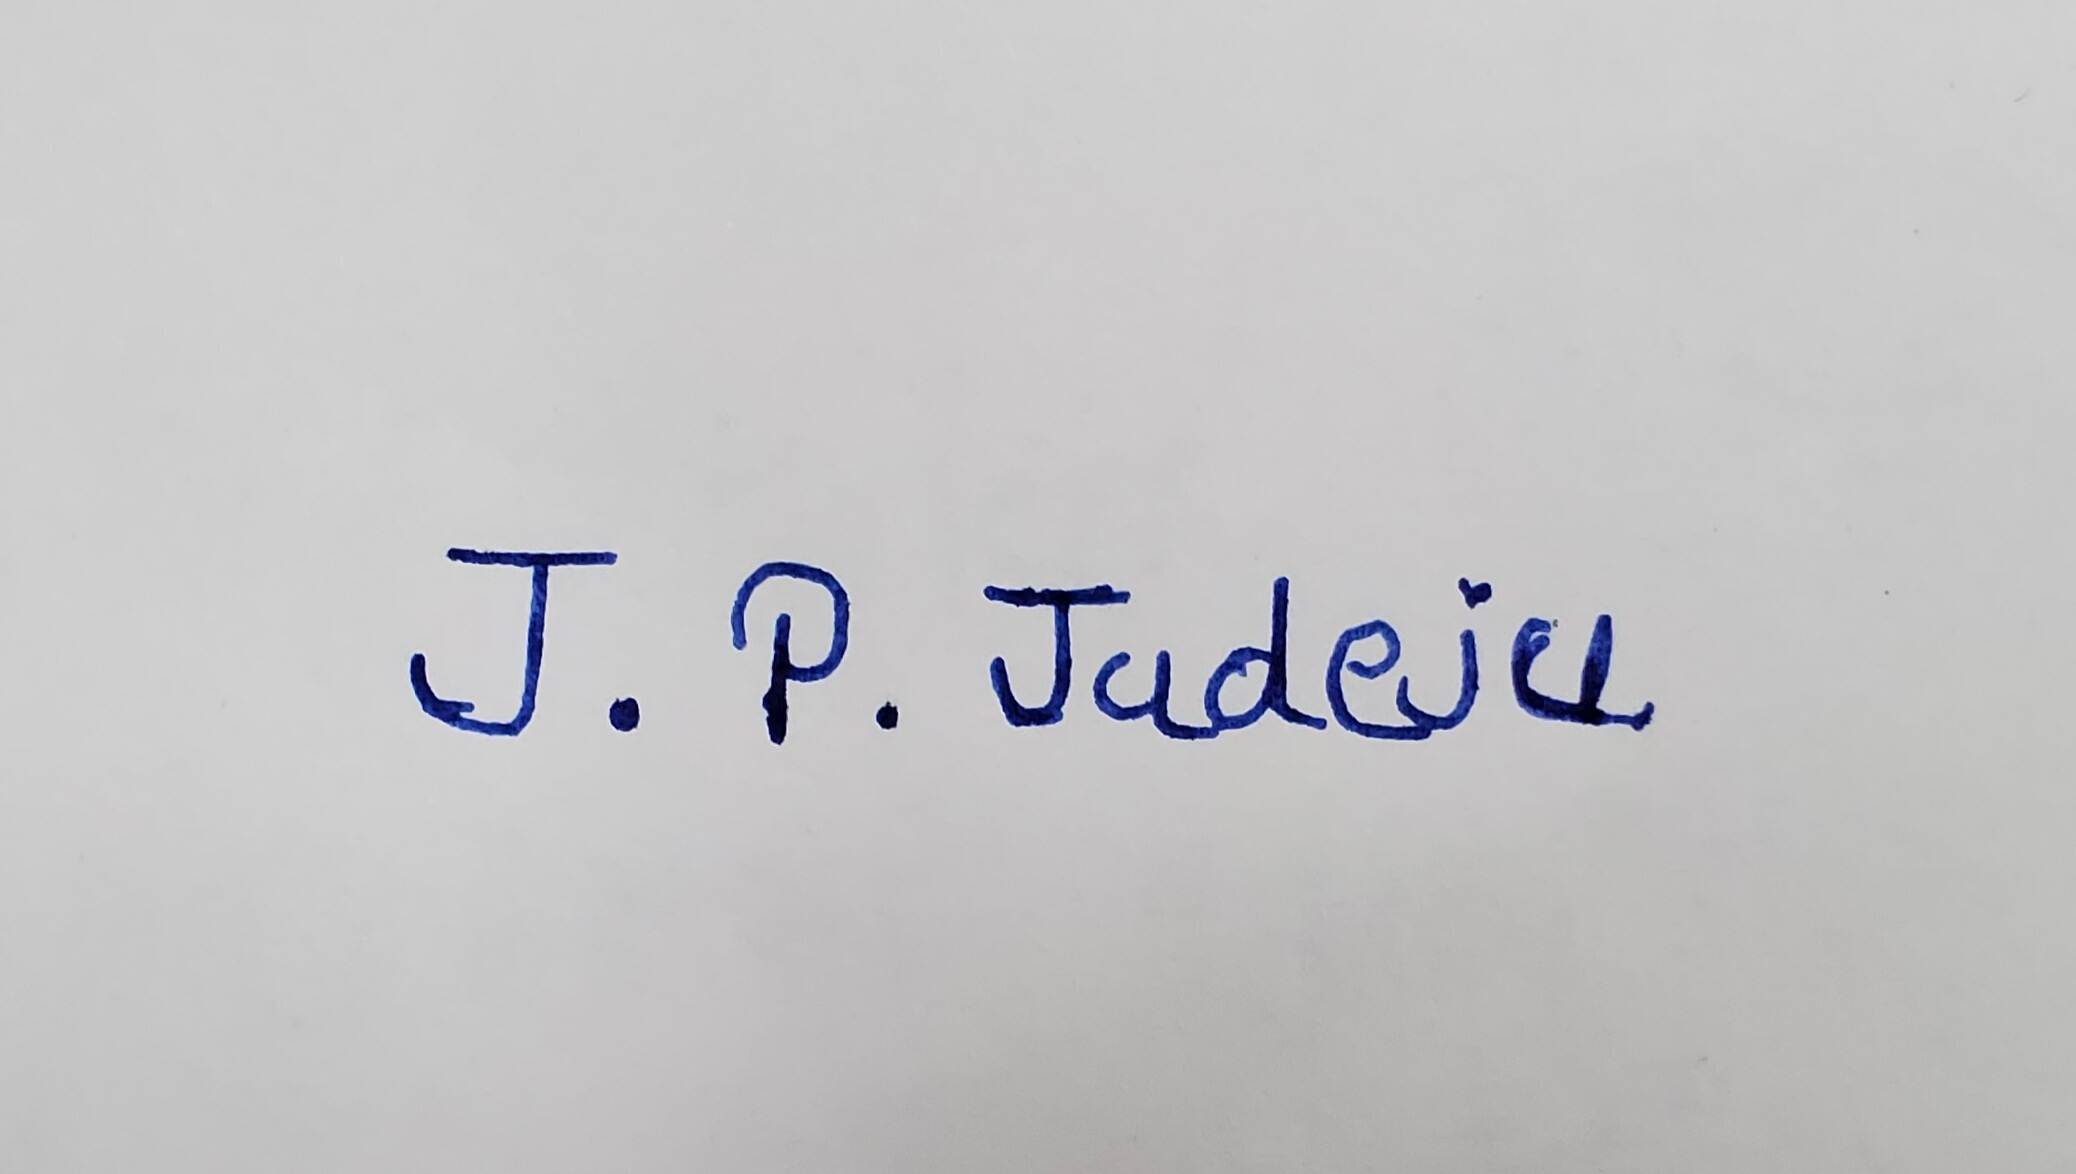 J. P. Jadeja